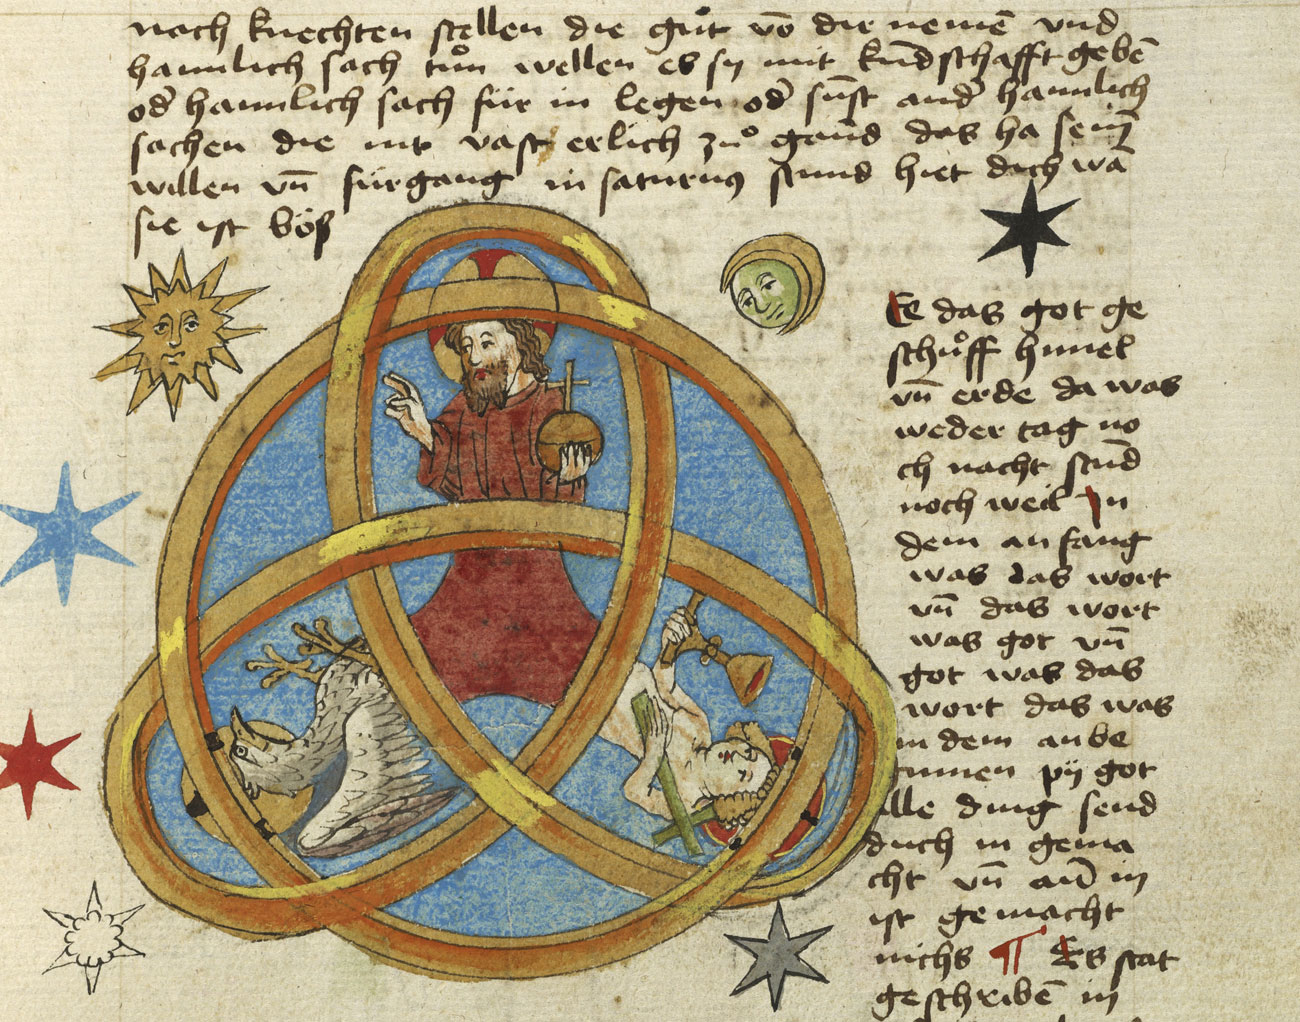 nach knechten stellen die gůt võ dir nemẽ vnd
haimlich sach tůn wellen es sy mit kũdschafft gebẽ
oď haimlich sach für in legen oď sũst anď haimlich
sachen die nit vast erlich zů gand das ha seinẽ
willen vñ fürgang in saturnꝯ stund hiet dich wã
sie ist bös
Ee das got ge
schůff himel
vñ erde da was
weder tag no
ch nacht stũd
noch weil In
dem anfang
was das wort
vñ das wort
was got vñ
got was das
wort das was
in dem anbe
ginnen py got
alle ding send
duch in gema
cht vñ añ in
ist gemacht
nichs ¶ Es stat
geschribẽ in